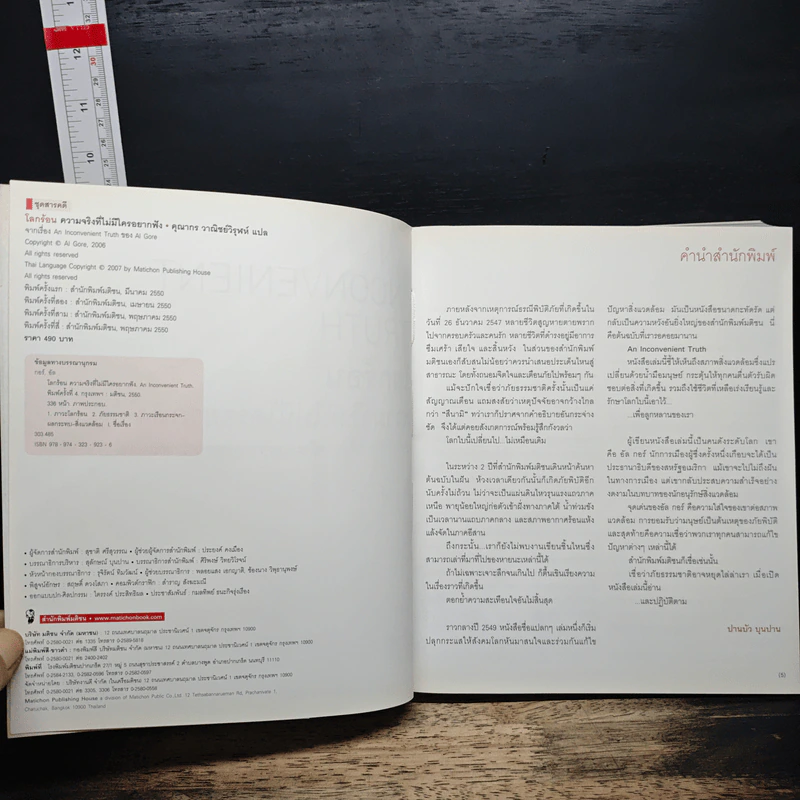 ชุดสารคดี
โลกร้อน ความจริงที่ไม่มีใครอยากฟัง • คุณากร วาณิชย์วิรุฬห์ แปล
จากเรื่อง An Inconvenient Truth ของ Al Gore
Copyright © Al Gore, 2006
All rights reserved
Thai Language Copyright © 2007 by Matichon Publishing House
All rights reserved
พิมพ์ครั้งแรก : สำนักพิมพ์มติชน, มีนาคม 2550
พิมพ์ครั้งที่สอง : สำนักพิมพ์มติชน, เมษายน 2550
พิมพ์ครั้งที่สาม : สำนักพิมพ์มติชน, พฤษภาคม 2550
พิมพ์ครั้งที่สี่ : สำนักพิมพ์มติชน, พฤษภาคม 2550
ราคา 490 บาท
ข้อมูลทางบรรณานุกรม
กอร์, อัล
โลกร้อน ความจริงที่ไม่มีใครอยากฟัง. An Inconvenient Truth.
พิมพ์ครั้งที่ 4. กรุงเทพฯ : มติชน, 2550
336 หน้า. ภาพประกอบ.
1. ภาวะโลกร้อน 2. ภัยธรรมชาติ 3. ภาวะเรือนกระจก-
ผลกระทบ-สิ่งแวดล้อม I. ชื่อเรื่อง
303.485
ISBN 978 - 974 - 322 - 923 - 6
• ผู้จัดการสำนักพิมพ์ : สุชาติ ศรีสุวรรณ • ผู้ช่วยผู้จัดการสำนักพิมพ์ : ประยงค์ คงเมือง
• บรรณาธิการบริหาร : สุลักษณ์ บุนปาน • บรรณาธิการสำนักพิมพ์ :
• หัวหน้ากองบรรณาธิการ :
• พิสูจน์อักษร :
• ออกแบบปก-ศิลปกรรม : • ประชาสัมพันธ์ :
สำนักพิมพ์มติชน • www.matichonbook.com
บริษัท มติชน จำกัด (มหาชน) : 12 ถนนเทศบาลนฤมาล ประชานิเวศน์ 1 เขตจตุจักร กรุงเทพฯ 10900
Matichon Publishing House a division of Matichon Public Co.,Ltd. 12 Tethsabannarueman Rd, Prachanivate 1,
Chatuchak, Bangkok 10900 Thailand
คำนำสำนักพิมพ์
ภายหลังจากเหตุการณ์ธรณีพิบัติภัยที่เกิดขึ้นใน
วันที่ 26 ธันวาคม 2547 หลายชีวิตสูญหายตายพราก
ไปจากครอบครัวและคนรัก หลายชีวิตที่ดำรงอยู่มีอาการ
ซึมเศร้า เสียใจ และสิ้นหวัง ในส่วนของสำนักพิมพ์
มติชนเองก็สับสนไม่น้อยว่าควรนำเสนอประเด็นไหนสู่
สาธารณะ โดยทั้งถนอมจิตใจและเตือนภัยไปพร้อมๆ กัน
แม้จะปักใจเชื่อว่าภัยธรรมชาติครั้งนั้นเป็นแค่
สัญญาณเตือน แถมสงสัยว่าเหตุปัจจัยอาจกว้างไกล
กว่า "สึนามิ" ทว่าเราก็ปราศจากคำอธิบายอันกระจ่าง
ชัด จึงได้แต่คอยสังเกตการณ์พร้อมรู้สึกกังวลว่า
โลกใบนี้เปลี่ยนไป...ไม่เหมือนเดิม
ในระหว่าง 2 ปีที่สำนักพิมพ์มติชนเดินหน้าค้นหา
ต้นฉบับในฝัน ห้วงเวลาเดียวกันนั้นก็เกิดภัยพิบัติอีก
นับครั้งไม่ถ้วน ไม่ว่าจะเป็นแผ่นดินไหวรุนแรงแถวภาค
เหนือ พายุน้อยใหญ่ก่อตัวเข้าฝั่งทางภาคใต้ น้ำท่วมขัง
เป็นเวลานานแถบภาคกลาง และสภาพอากาศร้อนแห้ง
แล้งจัดในภาคอีสาน
ถึงกระนั้น ...เราก็ยังไม่พบงานเขียนชิ้นไหนซึ่ง
สามารถเล่าที่มาที่ไปของหายนะเหล่านี้ได้
ถ้าไม่เฉพาะเจาะลึกจนเกินไป ก็ตื้นเขินเรียงความ
ในเรื่องราวที่เกิดขึ้น
ตอกย้ำความสะเทือนใจอันไม่สิ้นสุด
ราวกลางปี 2549 หนังสือชื่อแปลกๆ เล่มหนึ่งก็เริ่ม
ปลุกกระแสให้สังคมโลกหันมาสนใจและร่วมกันแก้ไข
ปัญหาสิ่งแวดล้อม มันเป็นหนังสือขนาดกะทัดรัด แต่
กลับเป็นความหวังอันยิ่งใหญ่ของสำนักพิมพ์มติชน นี่
คือต้นฉบับที่เรารอคอยมานาน
An Inconvenient Truth
หนังสือเล่มนี้ชี้ให้เห็นถึงสภาพสิ่งแวดล้อมซึ่งแปร
เปลี่ยนด้วยน้ำมือมนุษย์ กระตุ้นให้ทุกคนตื่นตัวรับผิด
ชอบต่อสิ่งที่เกิดขึ้น รวมถึงใช้ชีวิตที่เหลือเร่งเรียนรู้และ
รักษาโลกใบนี้เอาไว้...
...เพื่อลูกหลานของเรา
ผู้เขียนหนังสือเล่มนี้เป็นคนดังระดับโลก เขา
คือ อัล กอร์ นักการเมืองผู้ซึ่งครั้งหนึ่งเกือบจะได้เป็น
ประธานาธิบดีของสหรัฐอเมริกา แม้เขาจะไปไม่ถึงฝัน
ในทางการเมือง แต่เขากลับประสบความสำเร็จอย่าง
งดงามในบทบาทของนักอนุรักษ์สิ่งแวดล้อม
จุดเด่นของอัล กอร์ คือความใส่ใจของเขาต่อสภาพ
แวดล้อม การยอมรับว่ามนุษย์เป็นต้นเหตุของภัยพิบัติ
และสุดท้ายคือความเชื่อว่าพวกเราทุกคนสามารถแก้ไข
ปัญหาต่างๆ เหล่านี้ได้
สำนักพิมพ์มติชนก็เชื่อเช่นนั้น
เชื่อว่าภัยธรรมชาติอาจหยุดไล่ล่าเรา เมื่อเปิด
หนังสือเล่มนี้อ่าน
...และปฏิบัติตาม
ปานบัว บุนปาน
(5)